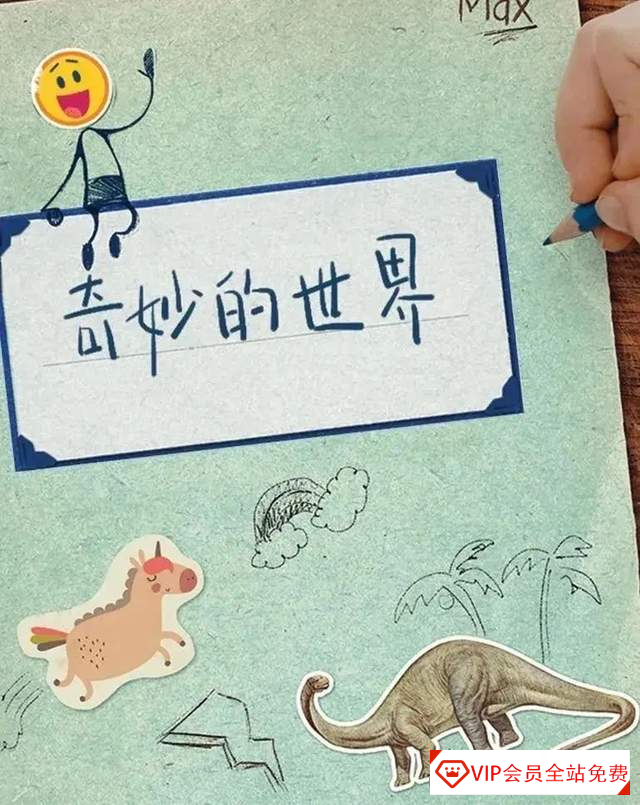 Max
奇妙的世界
VIP会员全站免费